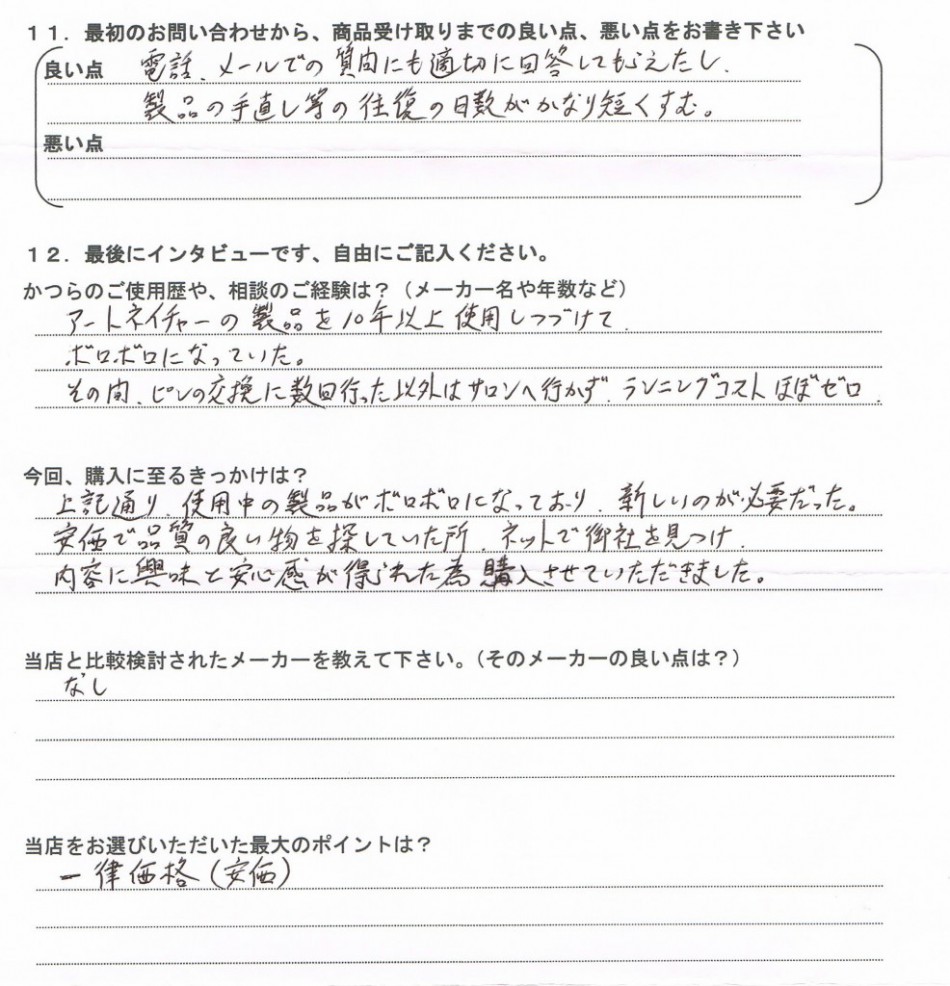 １１．最初のお問い合わせから、商品受け取りまでの良い点、悪い点をお書き下さい
良い点 電話、メールでの質問にも適切に回答してもらえたし、
製品の手直し等の往復の日数がかなり短くすむ。
悪い点
１２．最後にインタビューです、自由にご記入ください。
かつらのご使用歴や、相談のご経験は？（メーカー名や年数など）
アートネイチャーの製品を10年以上使用しつづけて、
ボロボロになっていた。
その間、ピンの交換に数回行った以外はサロンへ行かず、ランニングコストほぼゼロ、
今回、購入に至るきっかけは？
上記通り、使用中の製品がボロボロになっており、新しいのが必要だった。
安価で品質の良い物を探していた所、ネットで御社を見つけ、
内容に興味と安心感が得られた為購入させていただきました。
当店と比較検討されたメーカーを教えて下さい。（そのメーカーの良い点は？）
なし
当店をお選びいただいた最大のポイントは？
一律価格(安価)